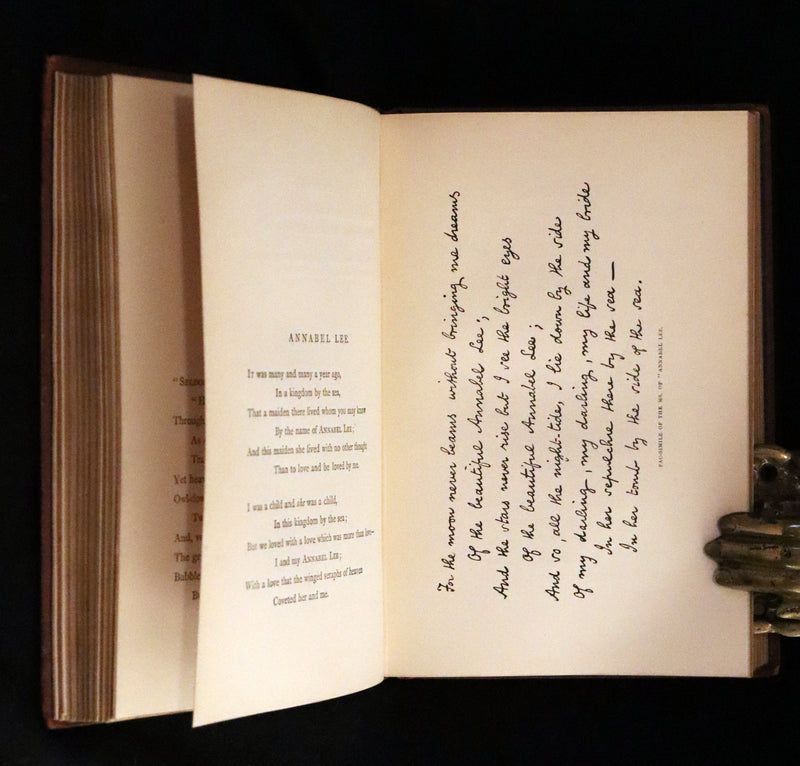 "
"
Through
As
Yet
Owl-
And,
The
Bubble
ANNABEL LEE
IT was many and many a year ago,
In a kingdom by the sea,
That a maiden there lived whom you may know
By the name of ANNABEL LEE;
And this maiden she lived with no other thought
Than to love and be loved by me.
I was a child and she was a child,
In this kingdom by the sea;
But we loved with a love which was more than love—
I and my ANNABEL LEE;
With a love that the winged seraphs of heaven
Coveted her and me.
For the moon never beams without bringing me dreams
Of the beautiful Annabel Lee;
And the stars never rise but I see the bright eyes
Of the beautiful Annabel Lee;
And so, all the night-tide, I lie down by the side
Of my darling, my darling, my life and my bride
In her sepulchre there by the sea —
In her tomb by the side of the sea.
FAC-SIMILE OF THE MS. OF "ANNABEL LEE.